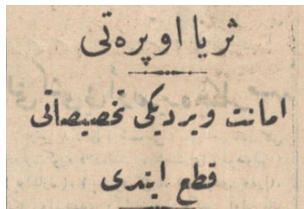 ثریا اوپره‌تی
امانت ویردیکی تخصیصاتی
قطع ایتدی